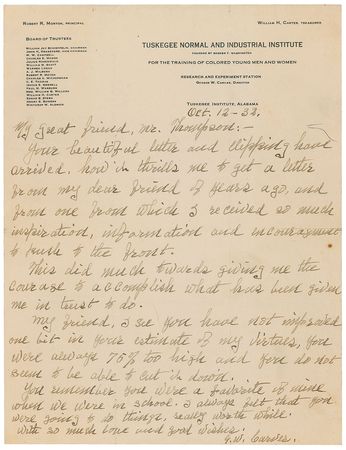 Robert R. Moton, Principal
William H. Carter, Treasurer
Board of Trustees
Tuskegee Normal and Industrial Institute
Founded by Booker T. Washington
For the Training of Colored Young Men and Women
Research and Experiment Station
George W. Carver, Director
Tuskegee Institute, Alabama
Oct. 12-32.
My great friend, Mr. Thompson:-
Your beautiful letter and clipping have
arrived, how it thrills me to get a letter
from my dear friend of years ago, and
from one from which I received so much
inspiration, information and encouragement
to push to the front.
This did much towards giving me the
courage to accomplish what has been given
me in trust to do.
My friend, I see you have not improved
one bit in your estimate of my virtues, you
were always 75% too high and you do not
seem to be able to cut it down.
You remember you were a favorite of mine
when we were in school. I always felt that you
were going to do things, really worth while.
With so much love and good wishes.
G.W. Carver.